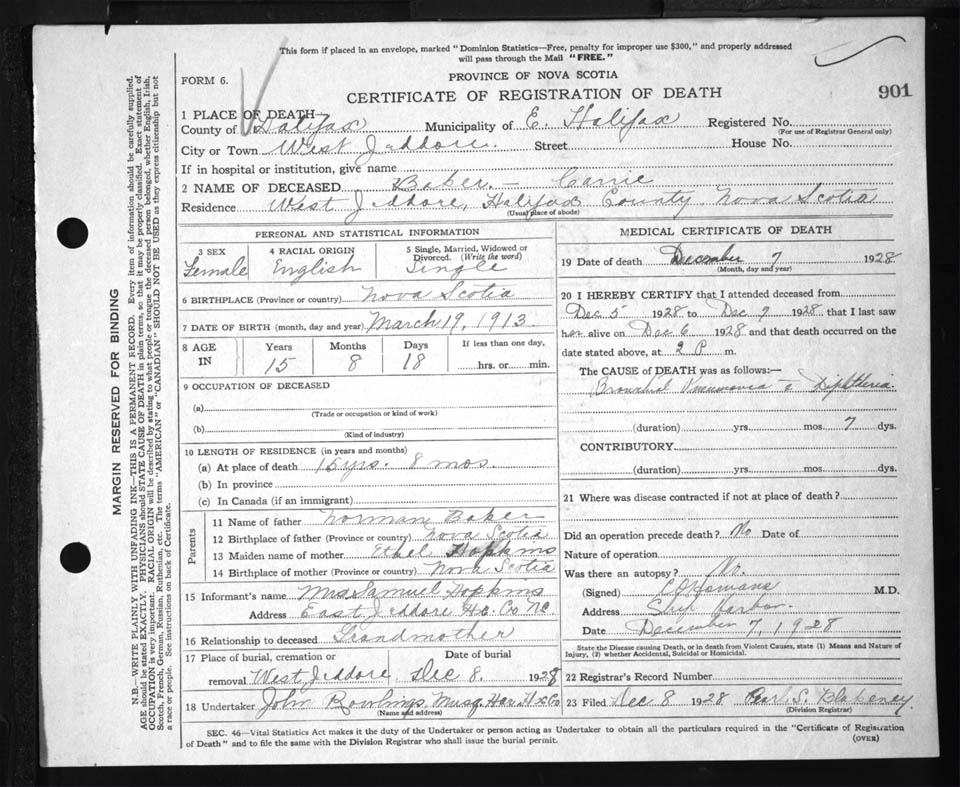 This form if placed in an envelope, marked "Dominion Statistics—Free, penalty for improper use $300," and properly addressed
will pass through the Mail "FREE."
FORM 6.
PROVINCE OF NOVA SCOTIA
CERTIFICATE OF REGISTRATION OF DEATH
901
1 PLACE OF DEATH—
County of Halifax Municipality of E. Halifax Registered No.
(For use of Registrar General only)
City or Town West Jeddore. Street House No.
If in hospital or institution, give name
2 NAME OF DECEASED Baker, - Carrie
Residence West Jeddore, Halifax County Nova Scotia
(Usual place of abode)
PERSONAL AND STATISTICAL INFORMATION
3 SEX Female
4 RACIAL ORIGIN English
5 Single, Married, Widowed or
Divorced. (Write the word)
Single
6 BIRTHPLACE (Province or country) Nova Scotia
7 DATE OF BIRTH (month, day and year) March 19, 1913
8 AGE IN
Years Months Days If less than one day,
15 8 18 hrs. or min.
9 OCCUPATION OF DECEASED
(a)
(Trade or occupation or kind of work)
(b)
(Kind of industry)
10 LENGTH OF RESIDENCE (in years and months)
(a) At place of death 15 yrs. 8 mos.
(b) In province
(c) In Canada (if an immigrant)
Parents
11 Name of father Norman Baker
12 Birthplace of father (Province or country) Nova Scotia
13 Maiden name of mother Ethel Hopkins
14 Birthplace of mother (Province or country) Nova Scotia
15 Informant's name Mrs Samuel Hopkins
Address East Jeddore
16 Relationship to deceased Grandmother
17 Place of burial, cremation or removal Date of burial
West Jeddore Dec 8. 1928
18 Undertaker John Rowlings, Musq. Har.
(Name and address)
MEDICAL CERTIFICATE OF DEATH
19 Date of death December 7 1928
(Month, day and year)
20 I HEREBY CERTIFY that I attended deceased from
Dec 5 1928 to Dec 7 1928 that I last saw
her alive on Dec 6 1928 and that death occurred on the
date stated above, at 2 P m.
The CAUSE OF DEATH was as follows:—
Bronchial Pneumonia & Diphtheria
(duration) yrs. mos. 7 dys.
CONTRIBUTORY
(duration) yrs. mos. dys.
21 Where was disease contracted if not at place of death?
Did an operation precede death? No Date of
Nature of operation
Was there an autopsy? No.
(Signed) M.D.
Address Ship Harbor.
Date December 7, 1928
State the Disease causing Death, or in death from Violent Causes, state (1) Means and Nature of
Injury, (2) whether Accidental, Suicidal or Homicidal.
22 Registrar's Record Number
23 Filed Dec 8 1928 S. Blakeney
(Division Registrar)
SEC. 46—Vital Statistics Act makes it the duty of the Undertaker or person acting as Undertaker to obtain all the particulars required in the "Certificate of Registration
of Death" and to file the same with the Division Registrar who shall issue the burial permit.
(OVER)
MARGIN RESERVED FOR BINDING
N.B.—WRITE PLAINLY WITH UNFADING INK—THIS IS A PERMANENT RECORD. Every item of information should be carefully supplied.
AGE should be stated EXACTLY. PHYSICIANS should STATE CAUSE OF DEATH in plain terms, so that it may be properly classified. Exact statement of
OCCUPATION is very important. RACIAL ORIGIN will be described by stating to what people or tongue the deceased person belonged, whether English, Irish,
Scotch, French, German, Russian, Ruthenian, etc. The terms "AMERICAN" or "CANADIAN" SHOULD NOT BE USED as they express citizenship but not
a race or people. See instructions on back of Certificate.